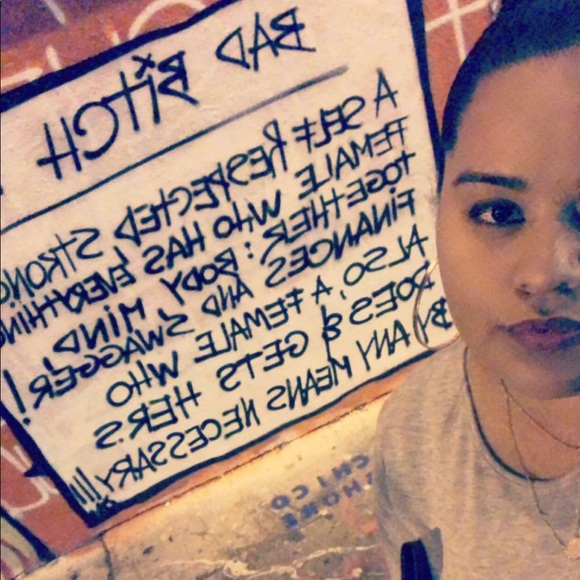 BAD BITCH
A SELF RESPECTED STRONG
FEMALE WHO HAS EVERYTHING
TOGETHER: BODY, MIND,
FINANCES AND SWAGGER!
ALSO, A FEMALE WHO
DOES & GETS HER'S
BY ANY MEANS NECESSARY!!!!
CHICO